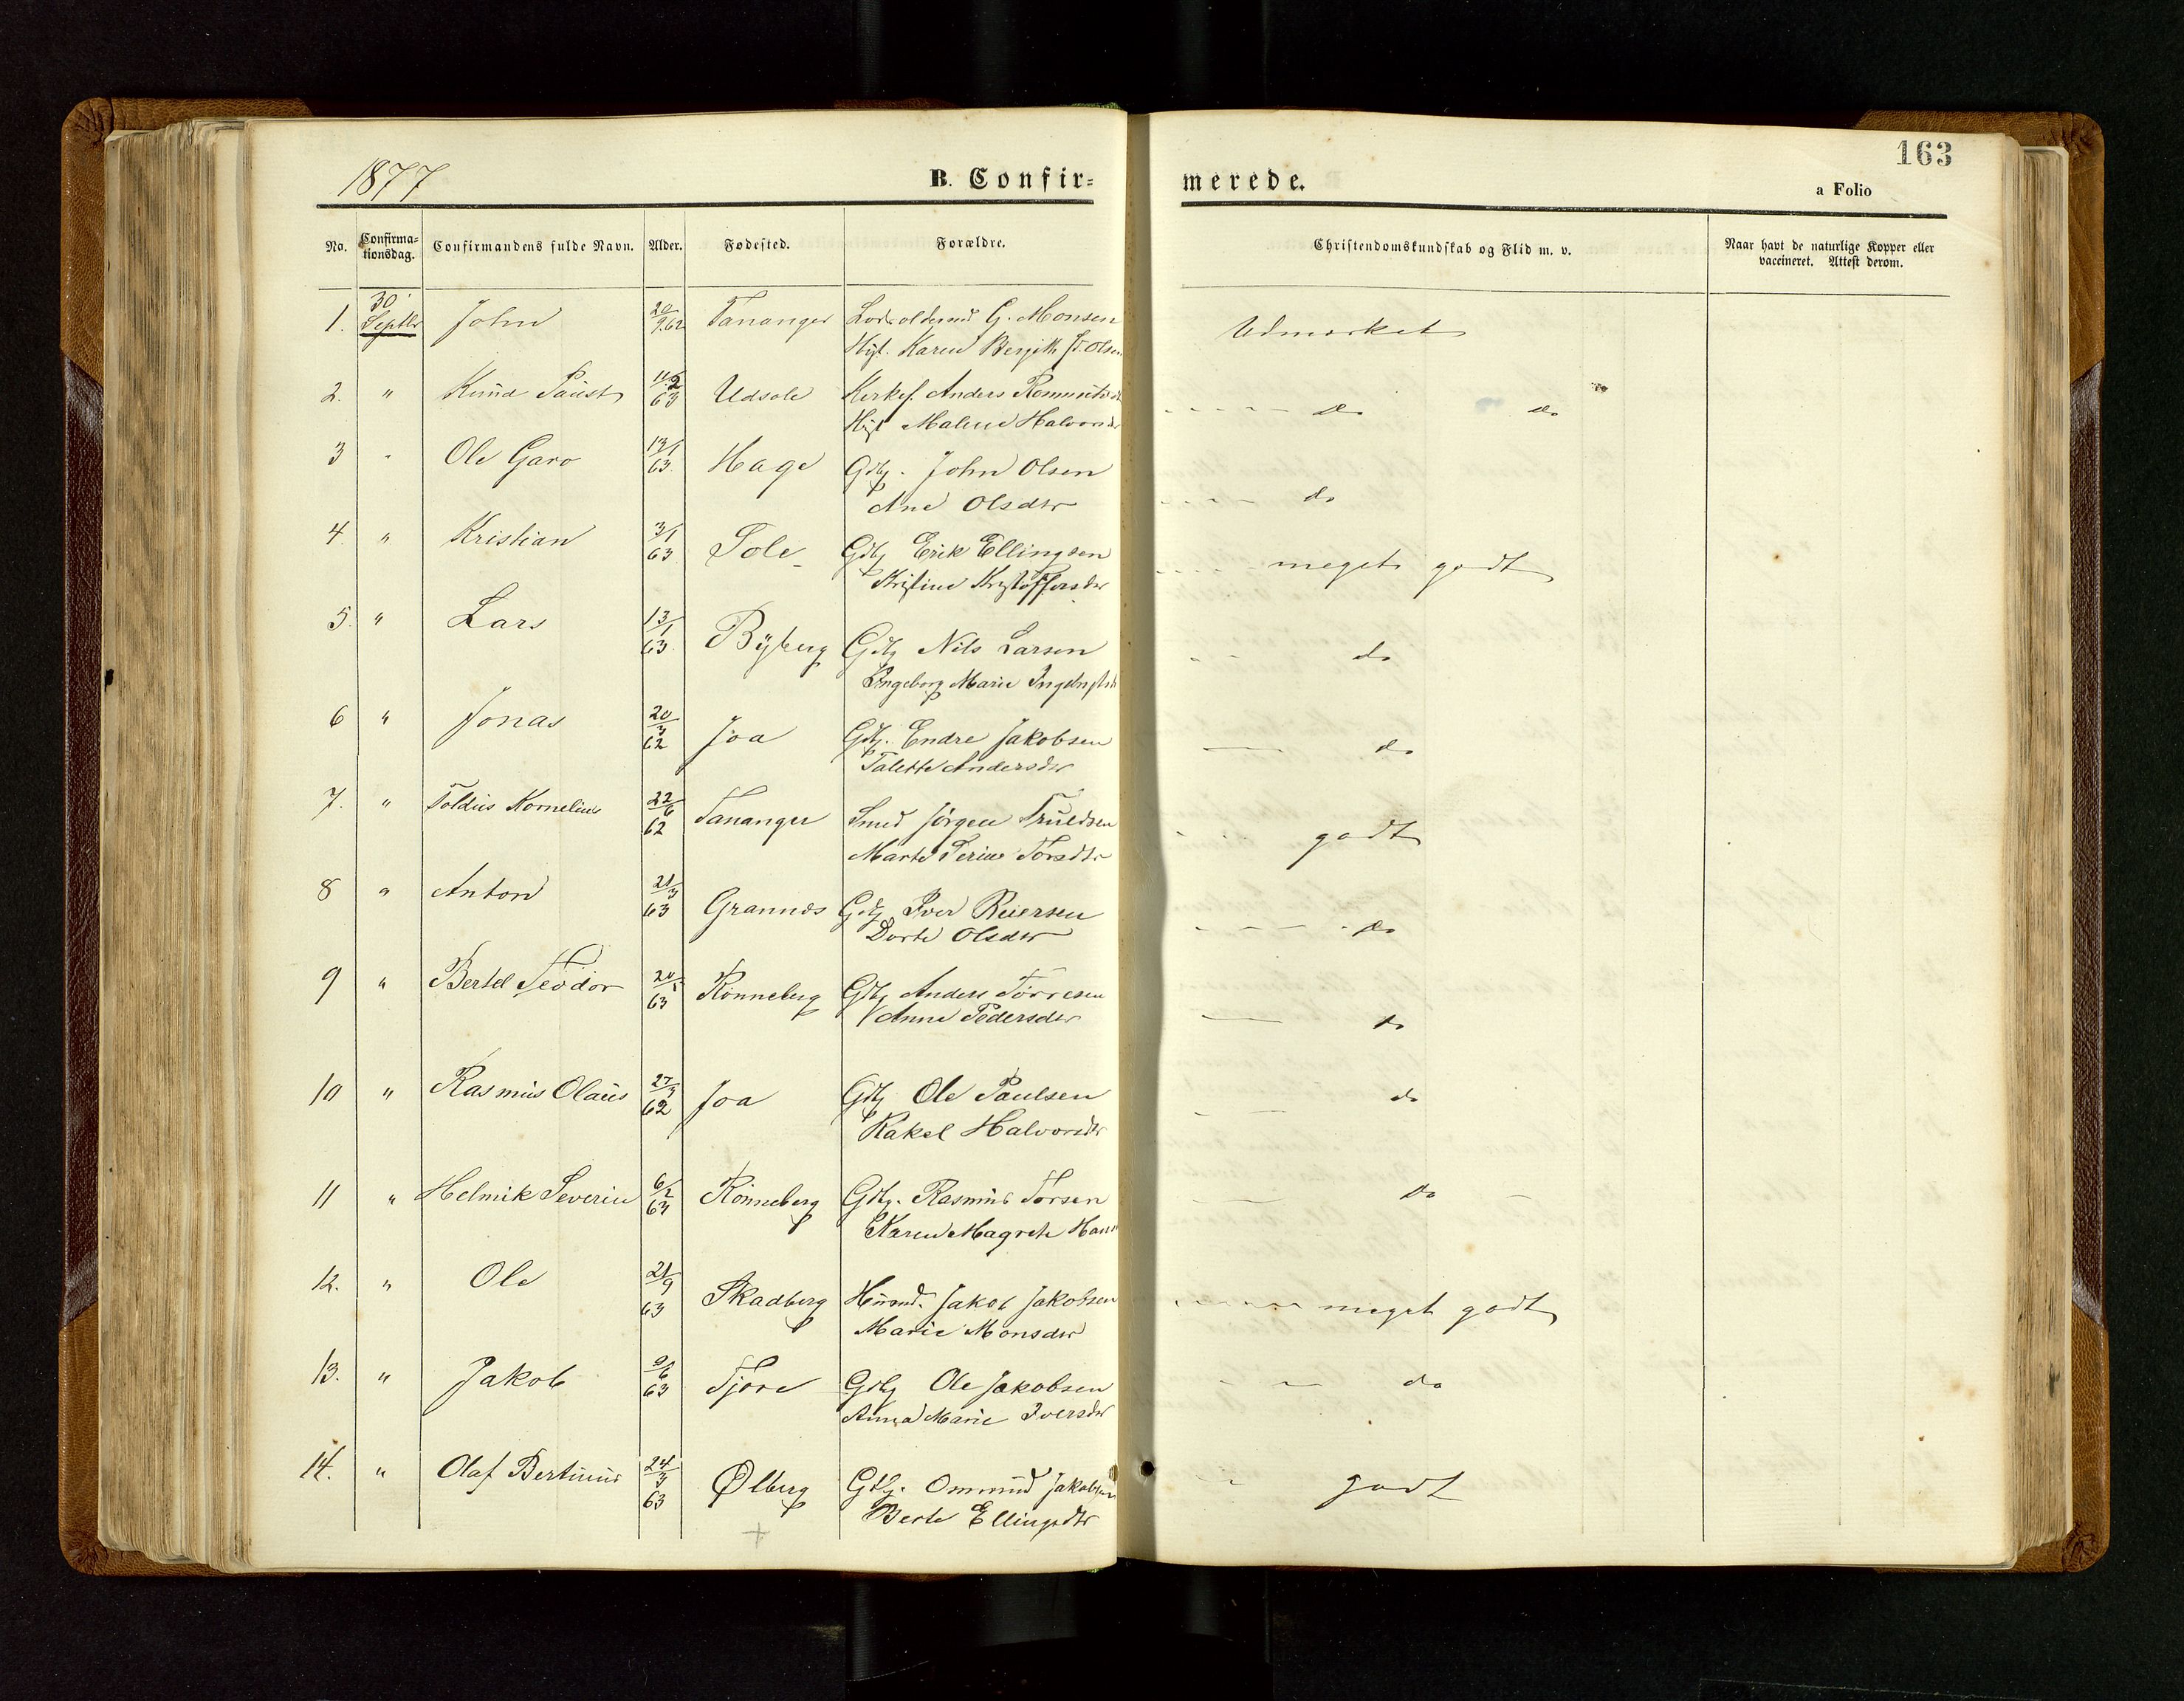 1877
B. Confir=
merede.
163
a Folio
No.
Confirma=
tionsdag.
Confirmandens fulde Navn.
Alder.
Fødested.
Forældre.
Christendomskundskab og Flid m. v.
Naar havt de naturlige Kopper eller
vaccineret. Attest derom.
1. 30 Septbr John 20/9.62 Tananger Lodsoldermd G. Monsen
Karen Olsen
Udmærket
2. " Knud Paust 63 Udsole Kirkes. Anders
Malene Halvorsdr
do do
3 " Ole Garo 13/1 63 Hage Gdbg. John Olsen
Ane Olsdtr
do
4 " Kristian 3/1 63 Sole Gdbg Erik Ellingsen
Kristine Kristoffersdtr
meget godt
5. " Lars 13/1 63. Byberg Gdbg Nils Larsen
Ingeborg Marie
do
6 " Jonas 20/3 62 Joa Gdbg. Endre Jakobsen
Talette Andersdtr
do
7. " Toldius Kornelius 22/6 62 Tananger Smed Jørgen Truldsen
Marte Serine Torsdtr
godt
8 " Anton 21/3 63 Grannes Gdbg Iver Reiersen
Dorte Olsdtr
do
9 " Bertel Teodor 20/5 63 Rønneberg Gdbg Anders Tørresen
Anne Pedersdtr
do
10 " Rasmus Olaus 27/3 62 Joa Gdbg Ole Paulsen
Rakel Halvorsdtr
do
11 " Helmik Severin 6/2 63 Rønneberg Gdbg. Rasmus Torsen
Karen Magrete Hans
do
12. " Ole 21/9 63 Skadberg Husmd. Jakob Jakobsen
Marie Monsdtr
meget godt
13. " Jakob 9/6 63 Tjore Gdbg Ole Jakobsen
Anna Marie Iversdtr
do
14. " Olaf Bertinius 24/3 63 Ølberg Gdbg. Ommund Jakobsen
Berte Ellingsdtr
godt